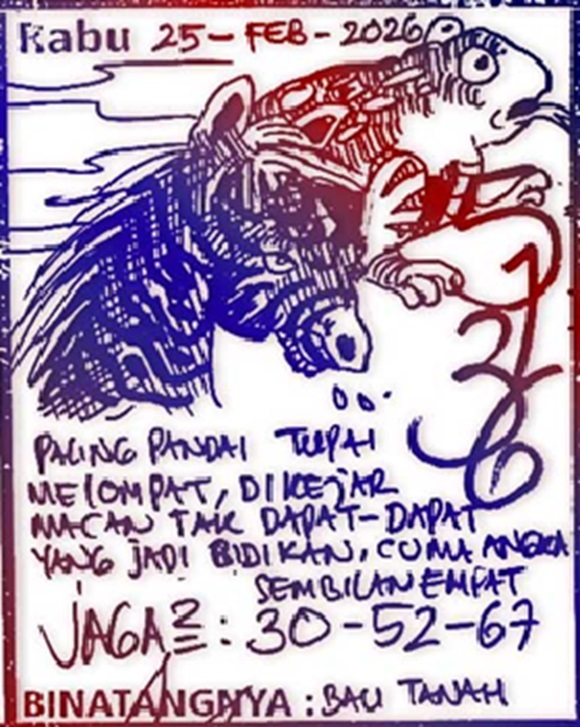 Rabu 25 - FEB - 2026
7
3
6
PALING PANDAI TUPAI
MELOMPAT, DIKEJAR
MACAN TAK DAPAT-DAPAT
YANG JADI BIDIKAN, CUMA ANGKA
SEMBILAN EMPAT
JAGA2 : 30 - 52 - 67
BINATANGNYA : BAU TANAH